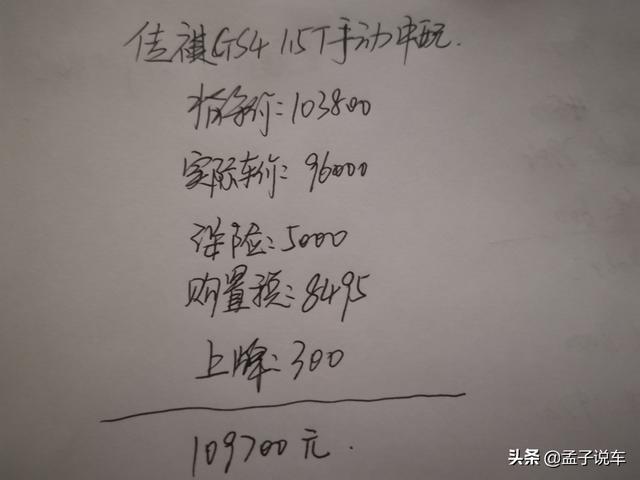 传祺GS4 1.5T手动中配.
指导价:103800
实际车价:96000
保险:5000
购置税:8495
上牌:300
109700元.
头条 @孟子说车